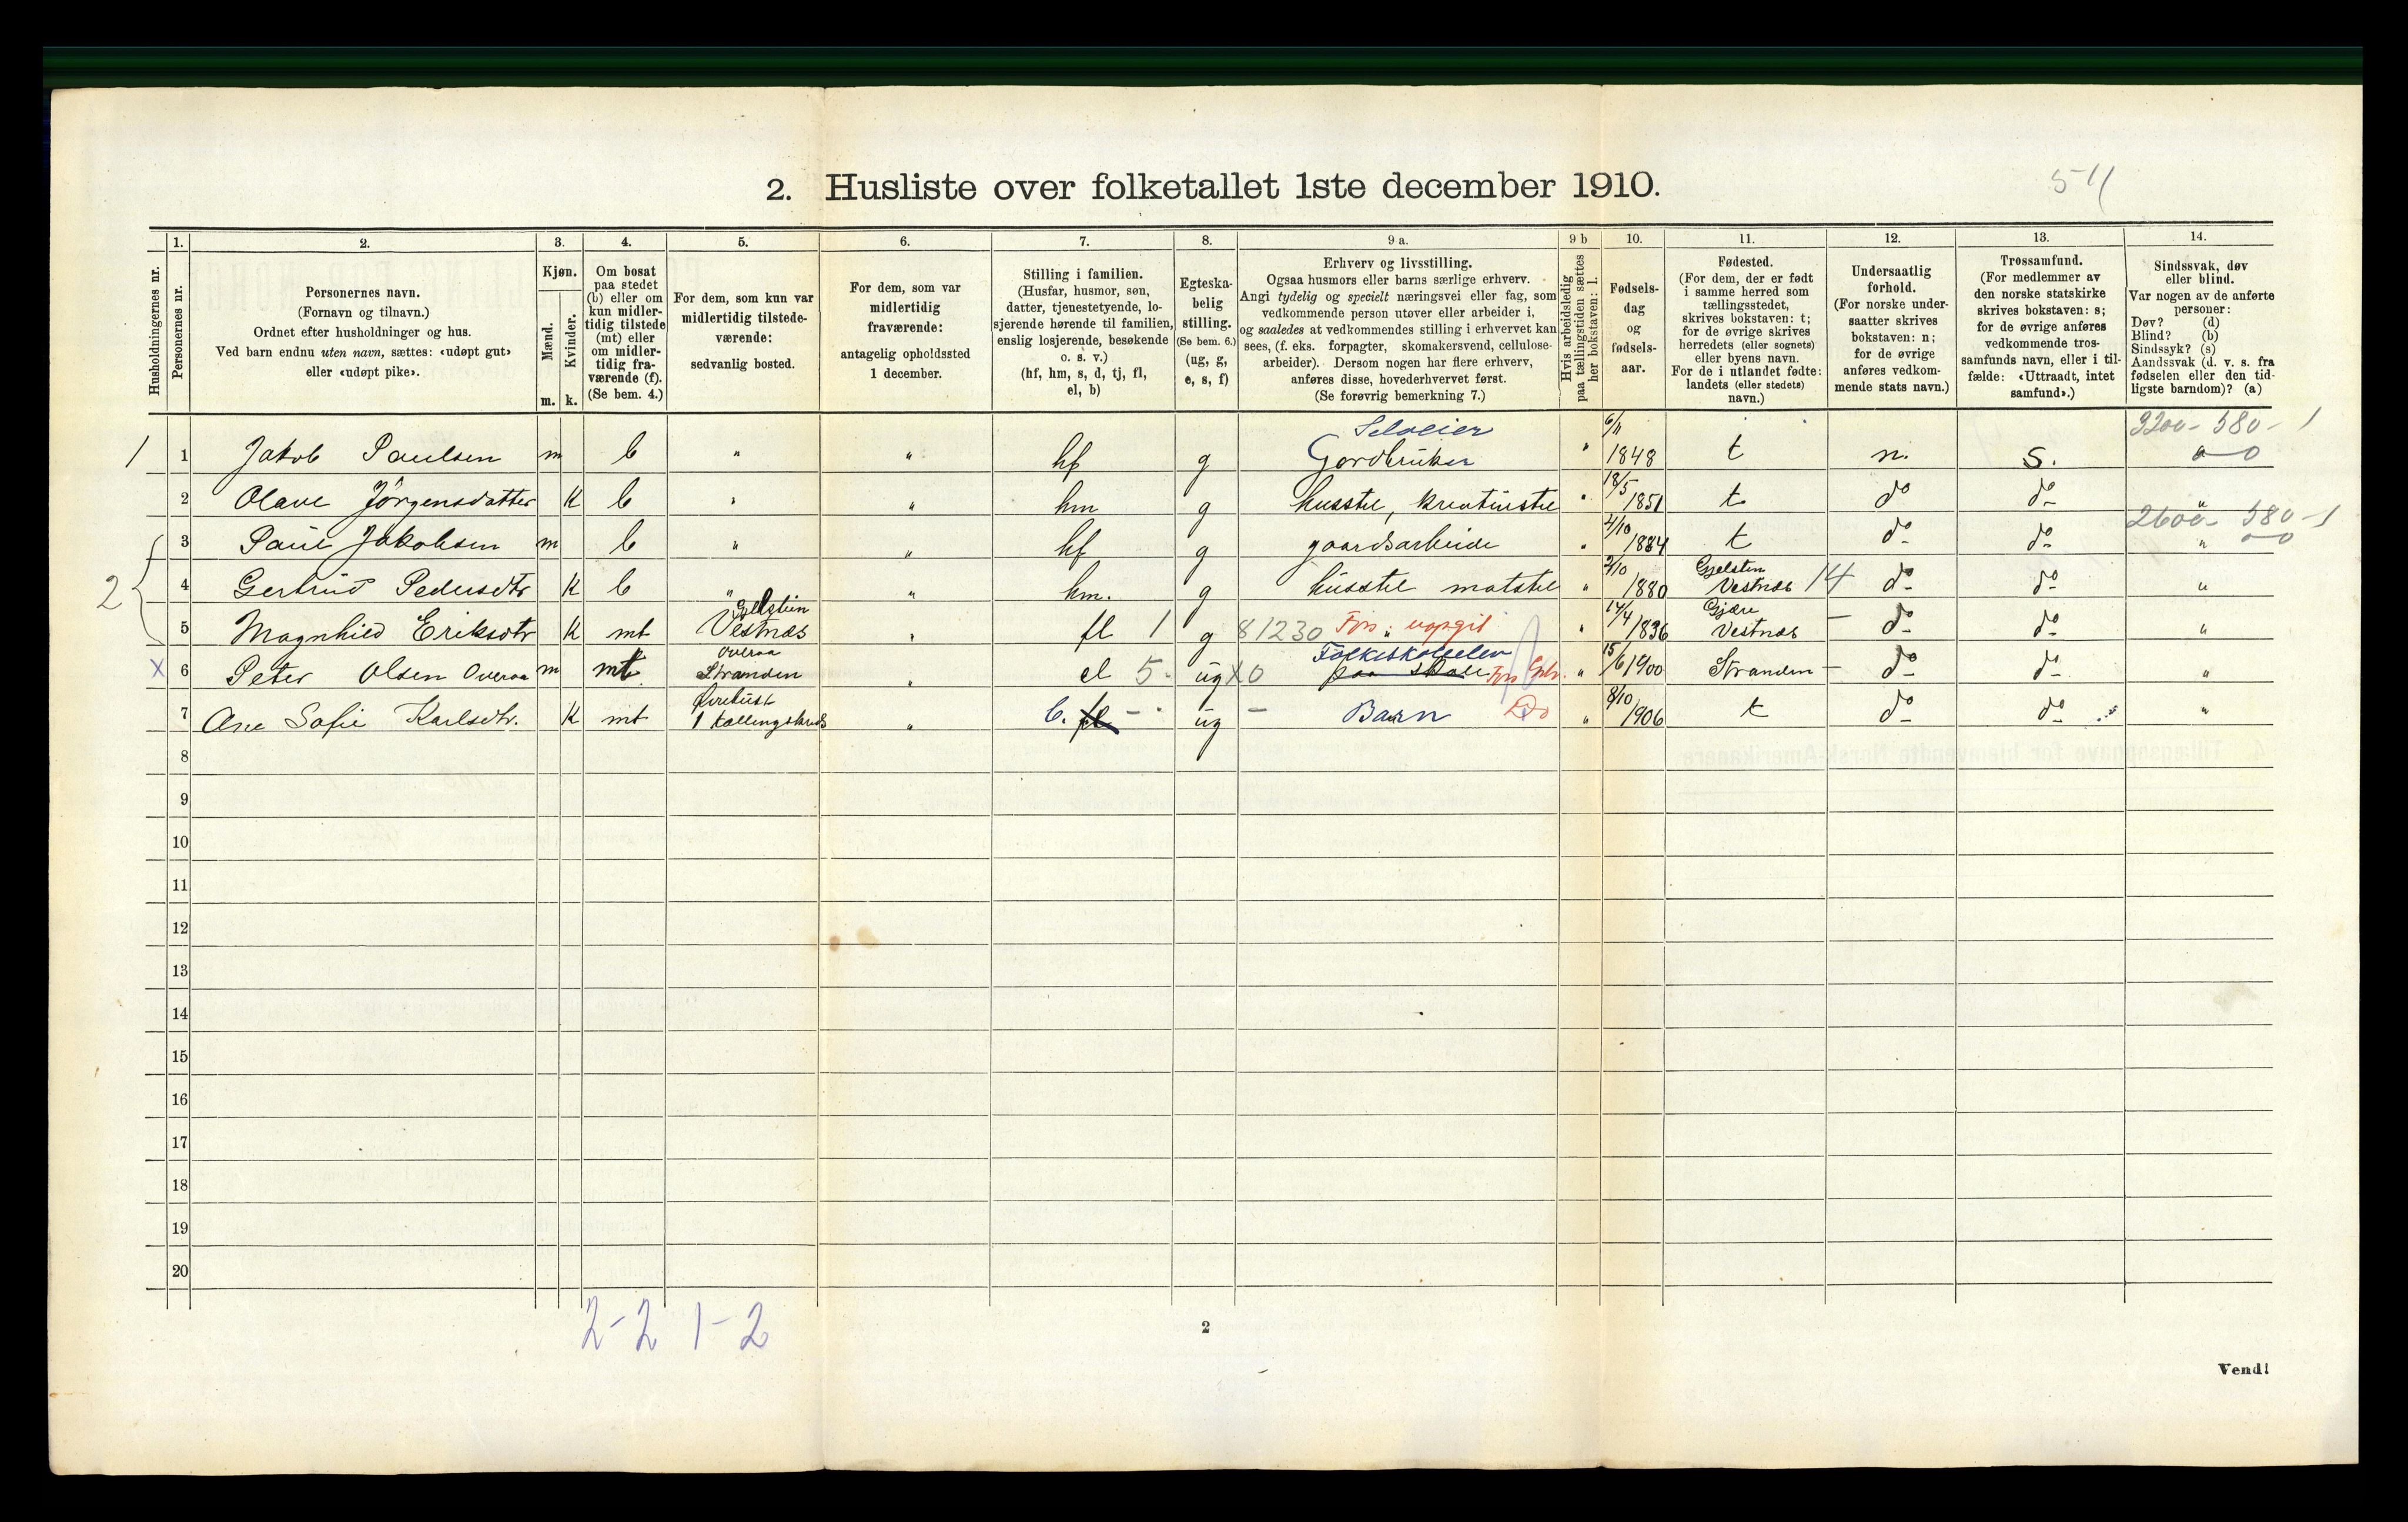 2. Husliste over folketallet 1ste december 1910.
54
1. 2. 3. 4. 5. 6. 7. 8. 9 a. 9 b 10. 11. 12. 13. 14.
Husholdningernes nr.
Personernes nr.
Personernes navn.
(Fornavn og tilnavn.)
Ordnet efter husholdninger og hus.
Ved barn endnu uten navn, sættes: «udøpt gut»
eller «udøpt pike».
Kjøn.
Mænd.
Kvinder.
m. k.
Om bosat
paa stedet
(b) eller om
kun midler-
tidig tilstede
(mt) eller
om midler-
tidig fra-
værende (f).
(Se bem. 4.)
For dem, som kun var
midlertidig tilstede-
værende:
sedvanlig bosted.
For dem, som var
midlertidig
fraværende:
antagelig opholdssted
1 december.
Stilling i familien.
(Husfar, husmor, søn,
datter, tjenestetyende, lo-
sjerende hørende til familien,
enslig losjerende, besøkende
o. s. v.)
(hf, hm, s, d, tj, fl,
el, b)
Egteska-
belig
stilling.
(Se bem. 6.)
(ug, g,
e, s, f)
Erhverv og livsstilling.
Ogsaa husmors eller barns særlige erhverv.
Angi tydelig og specielt næringsvei eller fag, som
vedkommende person utøver eller arbeider i,
og saaledes at vedkommendes stilling i erhvervet kan
sees, (f. eks. forpagter, skomakersvend, cellulose-
arbeider). Dersom nogen har flere erhverv,
anføres disse, hovederhvervet først.
(Se forøvrig bemerkning 7.)
Hvis arbeidsledig
paa tællingstiden sættes
her bokstaven: l.
Fødsels-
dag
og
fødsels-
aar.
Fødested.
(For dem, der er født
i samme herred som
tællingsstedet,
skrives bokstaven: t;
for de øvrige skrives
herredets (eller sognets)
eller byens navn.
For de i utlandet fødte:
landets (eller stedets)
navn.)
Undersaatlig
forhold.
(For norske under-
saatter skrives
bokstaven: n;
for de øvrige
anføres vedkom-
mende stats navn.)
Trossamfund.
(For medlemmer av
den norske statskirke
skrives bokstaven: s;
for de øvrige anføres
vedkommende tros-
samfunds navn, eller i til-
fælde: «Uttraadt, intet
samfund».)
Sindssvak, døv
eller blind.
Var nogen av de anførte
personer:
Døv? (d)
Blind? (b)
Sindssyk? (s)
Aandssvak (d. v. s. fra
fødselen eller den tid-
ligste barndom)? (a)
Selveier 6/11 3200- 580- 1
1 1 Jakob Paulsen m b " " hf g Gardbruker " 1848 t n. s. 0
2 Olave Jörgensdatter k b " " hm g husstel, kreaturstel " 18/5 1851 t do do "
2600- 580-1
3 Paul Jakobsen m b " " hf g gaardsarbeide " 1884 t do do "
2 4 Gertrud Pedersdtr k b " " hm. g husstel matstel " 2/10 1880 Gjelsten Vestnes 14 do do "
5 Magnhild Eriksdtr k mt Gjelstein Vestnæs " fl 1 g 81230 Fors. uopgit " 14/4 1836 Gjære Vestnes - do do "
Folkeskoleelev
x 6 Peter Olsen Overaa m mt Overaa Stranden " el 5. ug x0 paa skole " 15/6 1900 Stranden - do do "
7 Ane Sofie Karlsdtr. k mt 1 tællingskreds " b. fl - ug - Barn Do " 8/10 1906 t do do "
8
9
10
11
12
13
14
15
16
17
18
19
20
2-2 1-2
2
Vend!